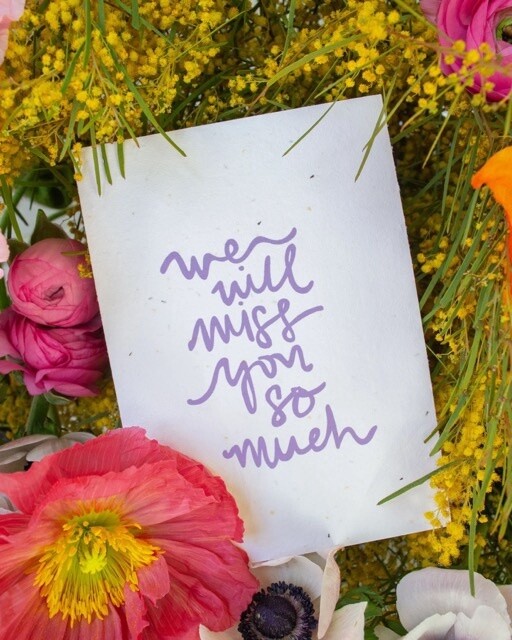 we
will
miss
you
so
much